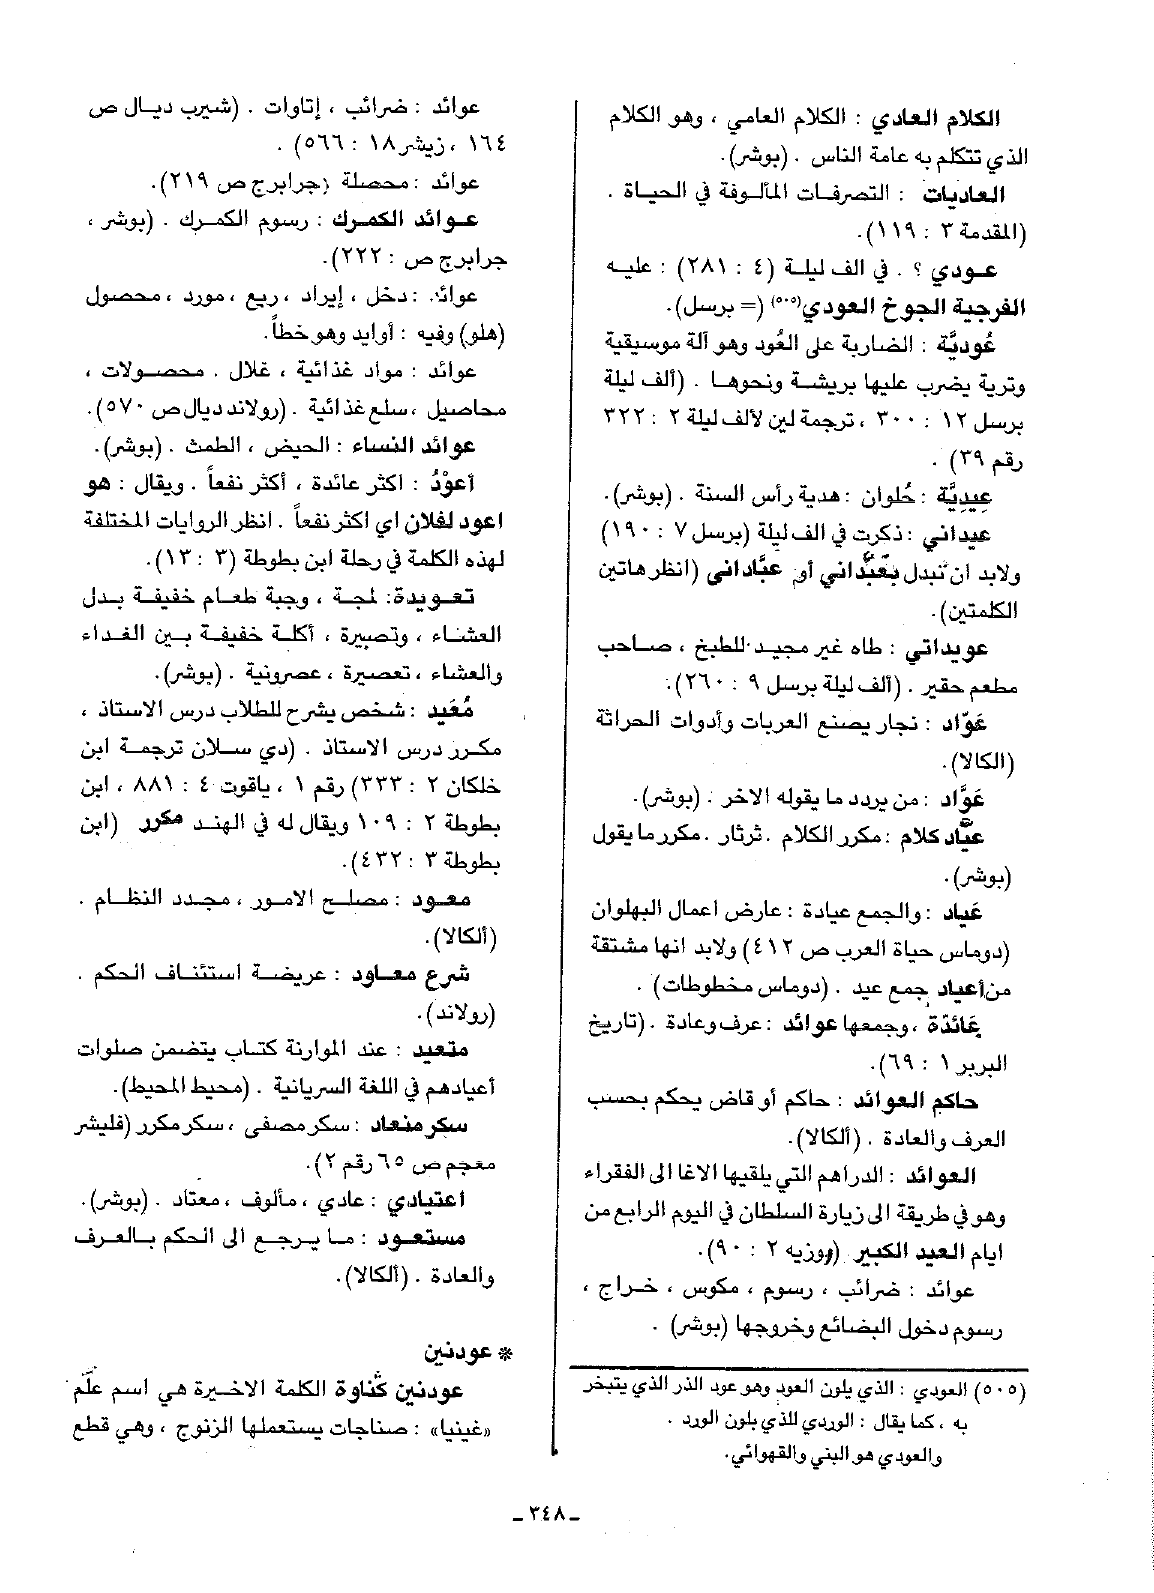 الكلام العادي : الكلام العامي ، وهو الكلام
الذي تتكلم به عامة الناس . (بوشر).
العاديات : التصرفات المألوفة في الحياة .
(المقدمة ٣ : ١١٩).
عودي ؟ . في الف ليلة (٤ : ٢٨١) : عليه
الفرجية الجوخ العودي(٥٠٥) (= برسل).
عُوديَّة : الضاربة على العُود وهو آلة موسيقية
وترية يضرب عليها بريشة ونحوها . (ألف ليلة
برسل ١٢ : ٣٠٠ ، ترجمة لين لألف ليلة ٢ : ٣٢٢
رقم ٣٩) .
عيدِيَّة : حُلوان : هدية رأس السنة . (بوشر).
عيداني : ذكرت في الف ليلة (برسل ٧ : ١٩٠)
ولابد ان تبدل بعَبَّداني أو عبَّاداني (انظر هاتين
الكلمتين).
عويداتي : طاه غير مجيد للطبخ ، صاحب
مطعم حقير . (ألف ليلة برسل ٩ : ٢٦٠).
عَوّاد : نجار يصنع العربات وأدوات الحراثة
(الكالا).
عَوَّاد : من يردد ما يقوله الاخر . (بوشر).
عيَّاد كلام : مكرر الكلام . ثرثار . مكرر ما يقول
(بوشر).
عَياد : والجمع عيادة : عارض اعمال البهلوان
(دوماس حياة العرب ص ٤١٢) ولابد انها مشتقة
من أعياد جمع عيد . (دوماس مخطوطات) .
عَائدَة ، وجمعها عوائد : عرف وعادة . (تاريخ
البربر ١ : ٦٩).
حاكم العوائد : حاكم أو قاض يحكم بحسب
العرف والعادة . (ألكالا).
العوائد : الدراهم التي يلقيها الاغا الى الفقراء
وهو في طريقة الى زيارة السلطان في اليوم الرابع من
ايام العيد الكبير (روزيه ٢ : ٩٠).
عوائد : ضرائب ، رسوم ، مكوس ، خراج ،
رسوم دخول البضائع وخروجها (بوشر) .
(٥٠٥) العودي : الذي يلون العود وهو عود الذر الذي يتبخر
به ، كما يقال : الوردي للذي بلون الورد .
والعودي هو البني والقهوائي.
عوائد : ضرائب ، إتاوات . (شيرب ديال ص
١٦٤ ، زيشر ١٨ : ٥٦٦) .
عوائد : محصلة (جرابرج ص ٢١٩).
عوائد الكمرك : رسوم الكمرك . (بوشر ،
جرابرج ص : ٢٢٢).
عوائد : دخل ، إيراد ، ريع ، مورد ، محصول
(هلو) وفيه : أوايد وهو خطأ.
عوائد : مواد غذائية ، غلال . محصولات ،
محاصيل ، سلع غذائية . (رولاند ديال ص ٥٧٠).
عوائد النساء : الحيض ، الطمث . (بوشر).
أعوْدُ : اكثر عائدة ، أكثر نفعاً . ويقال : هو
اعود لفلان اي اكثر نفعاً . انظر الروايات المختلفة
لهذه الكلمة في رحلة ابن بطوطة (٣ : ١٣).
تعويدة: لمجة ، وجبة طعام خفيفة بدل
العشاء ، وتصبيرة ، أكلة خفيفة بين الغداء
والعشاء ، تعصيرة ، عصرونية . (بوشر).
مُعَيد : شخص يشرح للطلاب درس الاستاذ ،
مكرر درس الاستاذ . (دي سلان ترجمة ابن
خلكان ٢ : ٢٣٣) رقم ١ ، ياقوت ٤ : ٨٨١ ، ابن
بطوطة ٢ : ١٠٩ ويقال له في الهند مكرر (ابن
بطوطة ٣ : ٤٣٢).
معود : مصلح الامور ، مجدد النظام .
(ألكالا).
شرع معاود : عريضة استئناف الحكم .
(رولاند).
متعيد : عند الموارنة كتاب يتضمن صلوات
أعيادهم في اللغة السريانية . (محيط المحيط).
سكر منعاد : سكر مصفى ، سكر مكرر (فليشر
معجم ص ٦٥ رقم ٢).
اعتيادي : عادي ، مألوف ، معتاد . (بوشر).
مستعود : ما يرجع الى الحكم بالعرف
والعادة . (ألكالا).
* عودنين
عودنين كناوة الكلمة الاخيرة هي اسم علم
«غينيا» : صناجات يستعملها الزنوج ، وهي قطع
ـ ٣٤٨ ـ